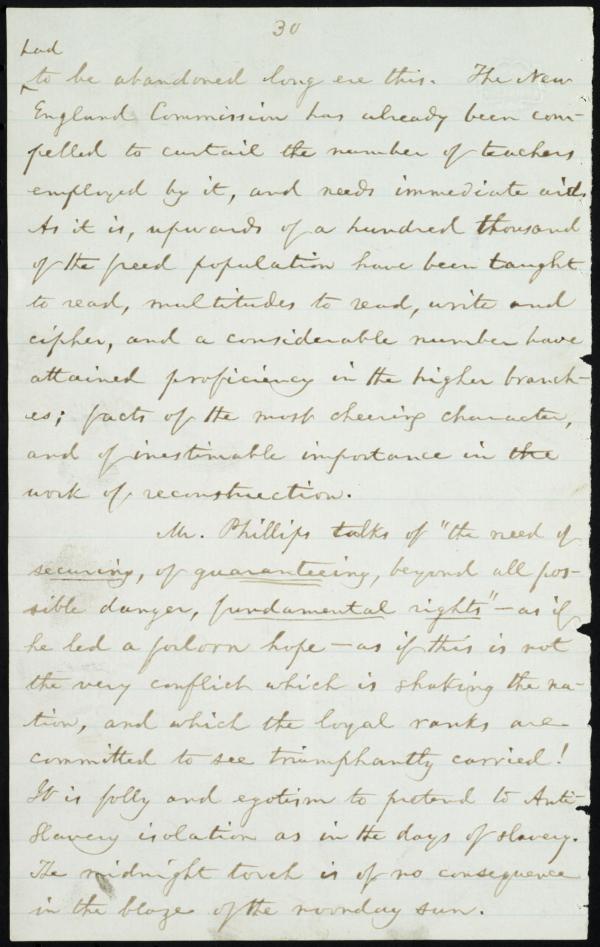 30
had
to be abandoned long ere this. The New
England Commission has already been com-
pelled to curtail the number of teachers
employed by it, and needs immediate aid.
As it is, upwards of a hundred thousand
of the freed population have been taught
to read, multitudes to read, write and
cipher, and a considerable number have
attained proficiency in the higher branch-
es; facts of the most cheering character,
and of inestimable importance in the
work of reconstruction.
Mr. Phillips talks of "the need of
securing, of guaranteeing, beyond all pos-
sible danger, fundamental rights"—as if
he led a forlorn hope—as if this is not
the very conflict which is shaking the na-
tion, and which the loyal ranks are
committed to see triumphantly carried!
It is folly and egotism to pretend to Anti-
Slavery isolation as in the days of slavery.
The midnight torch is of no consequence
in the blaze of the noonday sun.